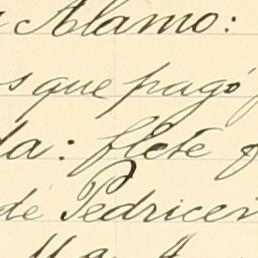 Alamo:
s que pagó
da: flete
de Pedricer